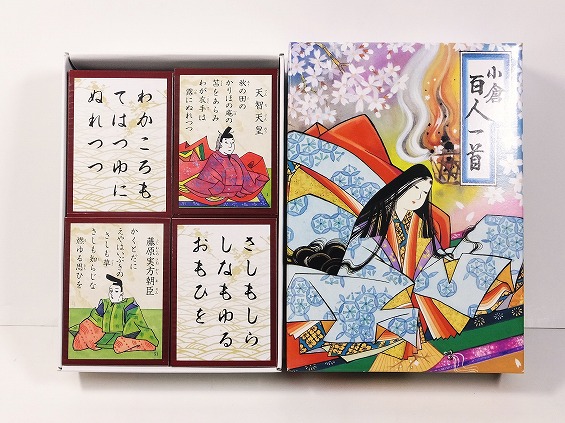 わかころも
てはつゆに
ぬれつつ
天智天皇
秋の田の
かりほの庵の
苫をあらみ
わが衣手は
露にぬれつつ
藤原実方朝臣
かくとだに
えやはいぶきの
さしも草
さしも知らじな
燃ゆる思ひを
51
さしもしら
しなもゆる
おもひを
小倉
百人一首